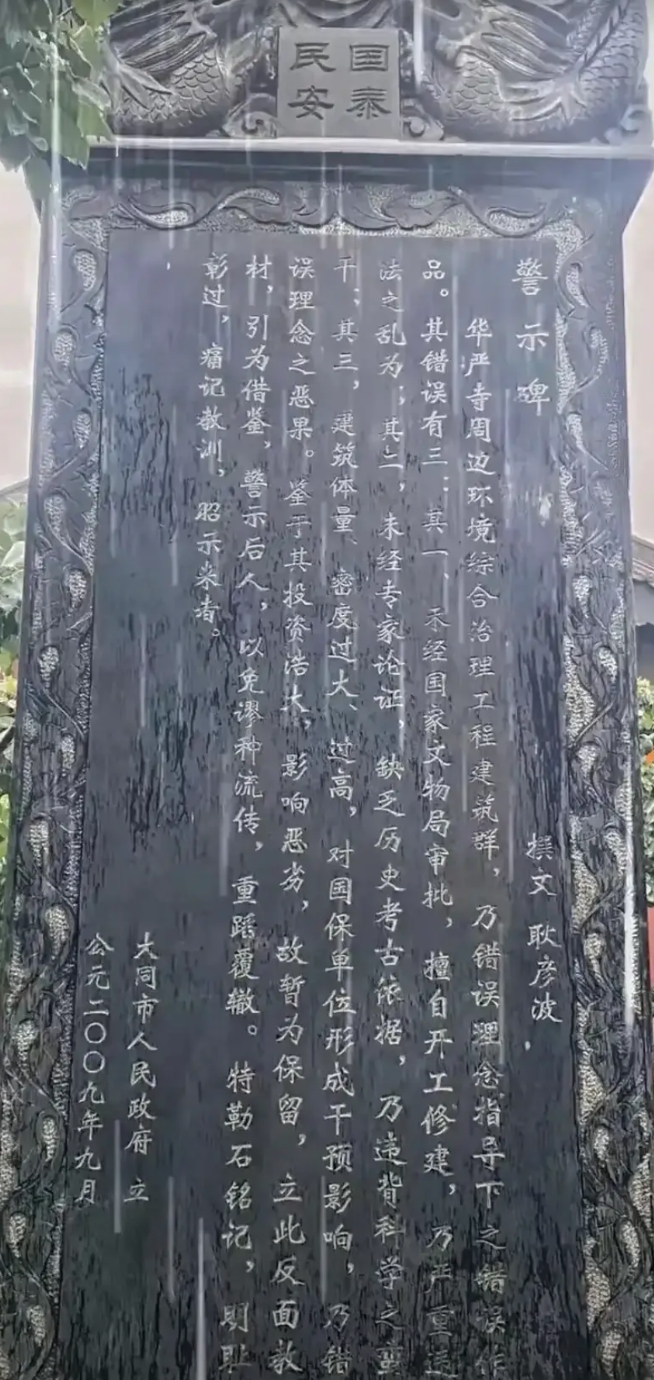 国泰
民安
警示碑
撰文 耿彦波
华严寺周边环境综合治理工程建筑群，乃错误理念指导下之错误作
品。其错误有三：其一、未经国家文物局审批，擅自开工修建，乃严重违
法之乱为；其二，未经专家论证，缺乏历史考古依据，乃违背科学之蛮
干；其三，建筑体量、密度过大、过高，对国保单位形成干预影响，乃错
误理念之恶果。鉴于其投资浩大，影响恶劣，故暂为保留，立此反面教
材，引为借鉴，警示后人，以免谬种流传，重蹈覆辙。特勒石铭记，明耻
彰过，痛记教训，昭示来者。
大同市人民政府 立
公元二〇〇九年九月